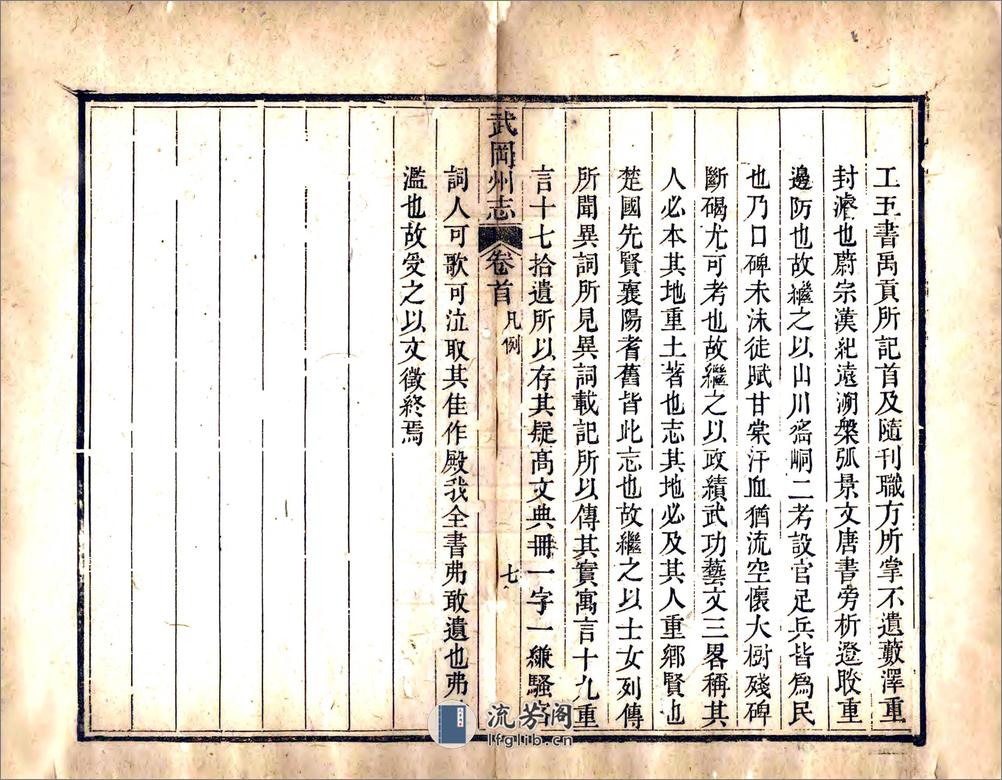 工五書禹貢所記首及隨刊職方所掌不遺藪澤重
封濬也蔚宗漢紀遠溯槃弧景文唐書旁析邆賧重
邊防也故繼之以山川峒二考設官足兵皆為民
也乃口碑未沫徒賦甘棠汗血猶流空懷大樹殘碑
斷碣尤可考也故繼之以政績武功藝文三畧稱其
人必本其地重土著也志其地必及其人重鄉賢也
楚國先賢襄陽耆舊皆此志也故繼之以士女列傳
所聞異詞所見異詞載記所以傳其實寓言十九重
言十七拾遺所以存其疑髙文典冊一字一縑騷
武岡州志
卷首
凡例
七
詞人可歌可泣取其佳作殿我全書弗敢遺也弗
濫也故受之以文徵終焉
流芳阁
lfglib.cn